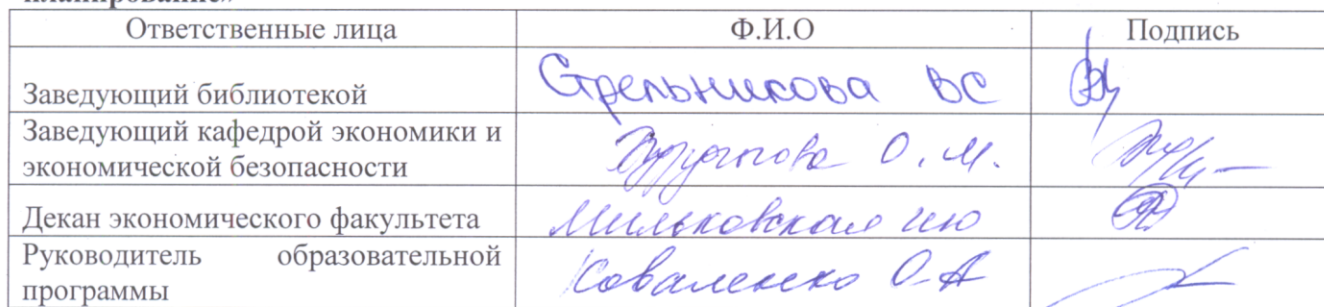 планирование»
Ответственные лица Ф.И.О Подпись
Заведующий библиотекой Стрельникова ВС
Заведующий кафедрой экономики и
экономической безопасности О. М.
Декан экономического факультета Мильковская ию
Руководитель образовательной
программы Коваленко О.А